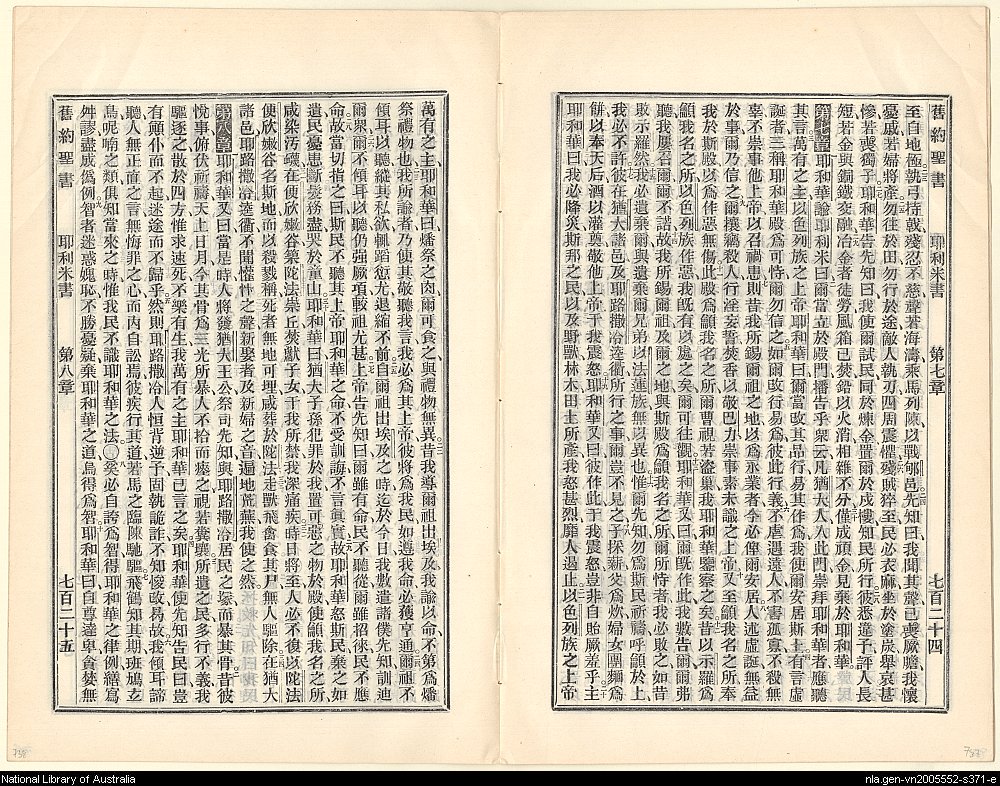 舊約聖書 耶利米書 第七章 七百二十四
至自地極執弓持戟殘忍不慈聲若海濤乘馬列陳以戰郇邑先知曰我聞其聲已喪厥膽我懷
憂戚若婦將產勿往於田勿行於途敵人執刃四周震懼殘賊猝至民必衣麻坐於塗炭舉哀甚
慘若喪獨子耶和華告先知曰我使爾試民同於煉金置爾於戍樓知民所行彼悉違予評人長
短若金與銅鐵交融冶金者徒勞風箱已焚鉛以火消相雜不分僅成頑金見棄於耶和華
第七章 耶和華諭耶利米曰爾當立於殿門播告乎衆云凡猶大人入此門崇拜耶和華者應聽
其言萬有之主以色列族之上帝耶和華曰爾當改其昂行易其作爲我使爾安居斯土有言虛
誕者三稱耶和華殿爲可恃爾勿信之如爾改行易爲彼此行義不虐遇遠人不害孤寡不殺無
辜不崇事他上帝以召禍患則昔我所錫爾祖之地以爲永業者今必俾爾安居人述虛誕無益
於事爾乃信之爾攘竊殺人行淫妄誓焚香以敬巴力崇事素未識之上帝又至籲我名之所奉
我於斯殿以爲作惡無傷此殿爲籲我名之所爾曹視若盜巢我耶和華鑒察之矣昔以示羅爲
籲我名之所以色列族作惡我旣有以處之矣爾可往觀耶和華又曰爾旣作此我數告爾爾弗
聽我屢召爾爾不諾故我所錫爾祖及爾之地與斯殿爲籲我名之所爾所恃者我必敗之如昔
敗示羅然我必遺棄爾與遺棄爾兄弟以法蓮族無以異也惟爾先知勿爲斯民祈禱呼籲於上
我必不許彼在猶大諸邑及耶路撒冷逵衢所行之事爾豈不見之子採薪父爲炊婦女團麵爲
餅以奉天后酒以灌奠敬他上帝干我震怒耶和華又曰彼作此干我震怒豈非自貽厥羞乎主
耶和華曰我必降災斯邦之民以及野獸林木田土所產我怒甚烈靡人遏止以色列族之上帝
萬有之主耶和華曰燔祭之肉爾可食之與禮物無異昔我導爾祖出埃及我諭以命不第爲燔
祭禮物也我所諭者乃使其敬聽我言我必爲其上帝彼將爲我民如遵我命必獲亨通爾祖不
傾耳以聽縱其私欲輒蹈愆尤退縮不前自爾祖出埃及之時迄於今日我數遣諸僕先知訓迪
爾衆爾不傾耳以聽仍強厥項較祖尤甚上帝告先知曰爾雖有命民不聽從爾雖招徠民不應
命故爾當切指之曰斯民不聽其上帝耶和華之命不受訓誨不言眞實故耶和華怒斯民棄之如
遺民憂患斷髮務盡哭於童山耶和華曰猶大子孫犯罪於我置可惡之物於殿使籲我名之所
咸染汚穢在便欣嫩谷築陀法崇丘焚獻子女干我所禁我深痛疾時日將至人必不復以陀法
便欣嫩谷名斯地而以殺戮稱死者無地可埋咸葬於陀法走獸飛禽食其尸無人驅除在猶大
諸邑耶路撒冷逵衢不聞懽忭之聲新娶者及新婦之音遍地荒蕪我使之然
第八章 耶和華又曰當是時人將發猶大王公祭司先知與耶路撒冷居民之塚而暴其骨昔彼
悅事俯伏祈禱天上日月今其骨爲三光所暴人不拾而瘞之視若糞壤所遺之民多行不義我
驅逐之散於四方惟求速死不樂有生我萬有之主耶和華已言之矣耶和華使先知告民曰豈
有顚仆而不起迷途而不歸乎然則耶路撒冷人恒背逆予固執詭詐不知悛改易故我傾耳諦
聽人無正直之言無悔罪之心而內自訟焉彼疾行其道若馬之臨陳馳驅飛鶴知其期班鳩玄
鳥呢喃之類俱知當來之時惟我民不識耶和華之法奚必自誇爲智得耶和華之律例繕寫
舛謬盡成僞例智者迷惑媿恥不勝憂疑棄耶和華之道烏得爲智耶和華曰自尊達卑貪婪無
舊約聖書 耶利米書 第八章 七百二十五
National Library of Australia
nla.gen-vn2005552-s371-e